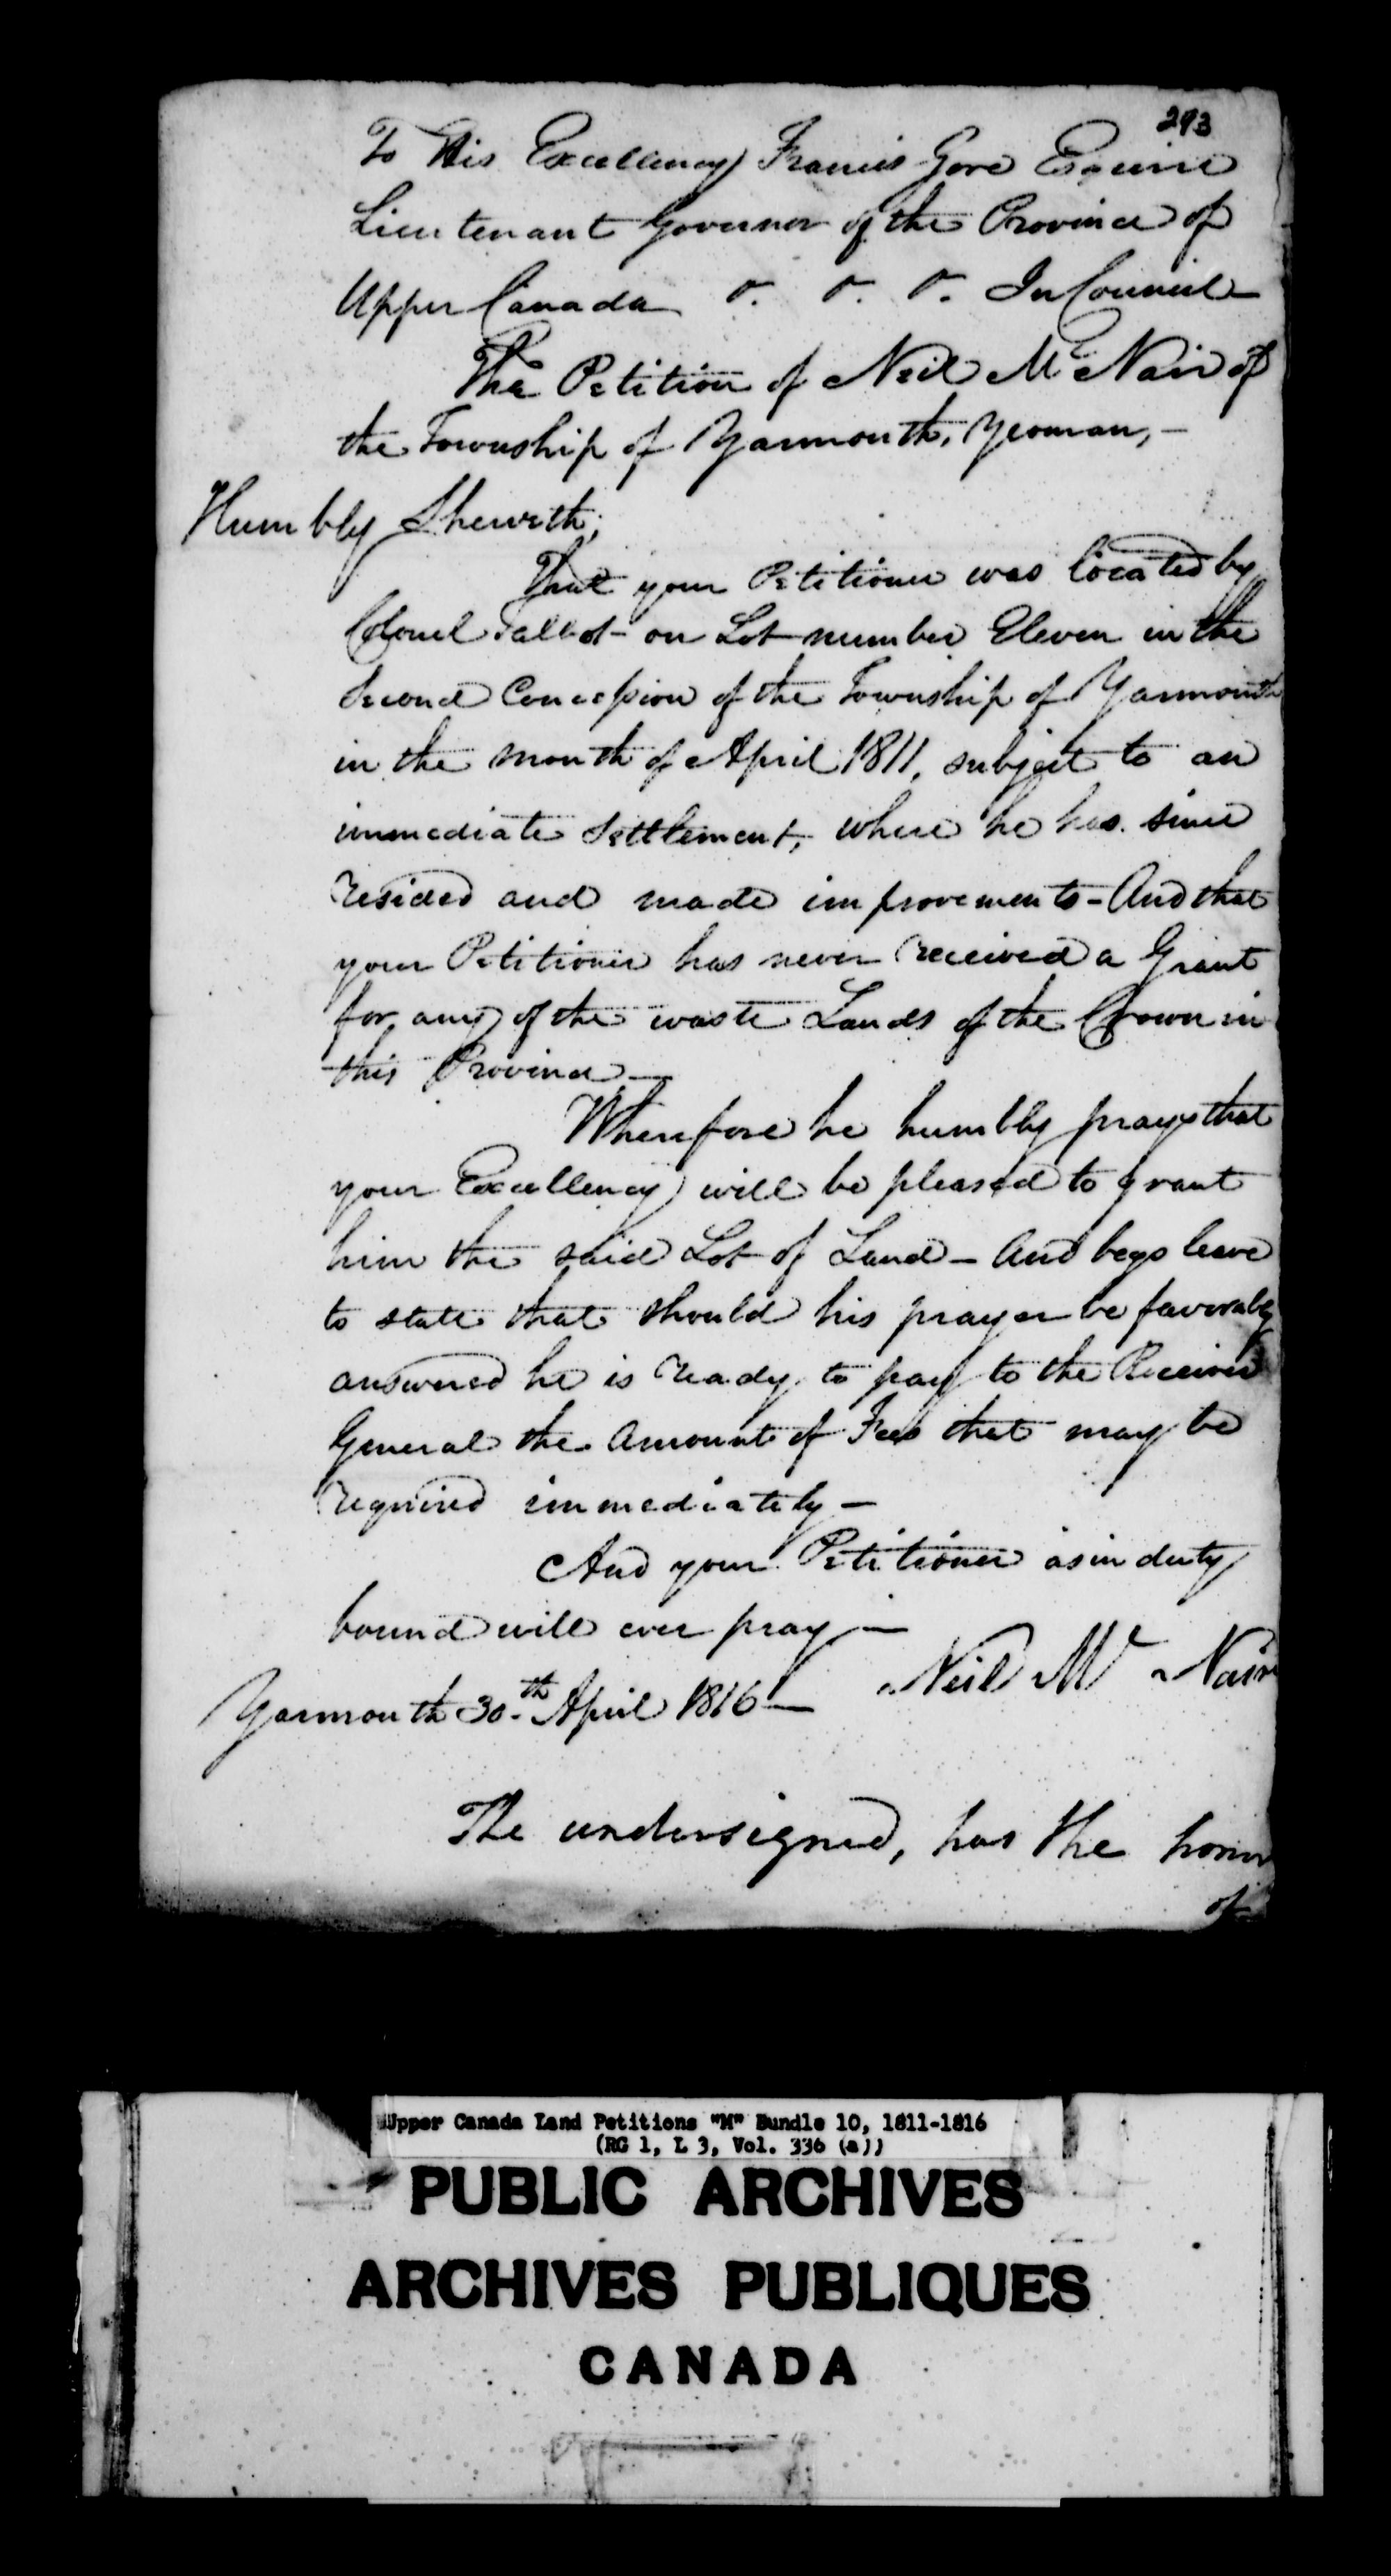 293
To His Excellency Francis Gore Esquire
Lieutenant Governor of the Province of
Upper Canada &. &. &. In Council
The Petition of Neil Mc Nair of
the Township of Yarmouth, Yeoman, -
Humbly Sheweth;
That your Petitioner was located by
Colonel Talbot - on Lot number Eleven in the
Second Concession of the Township of Yarmouth
in the month of April 1811, subject to an
immediate Settlement, where he has since
resided and made improvements - And that
your Petitioner has never received a Grant
for any of the waste Lands of the Crown in
this Province -
Wherefore he humbly prays that
your Excellency will be pleased to grant
him the said Lot of Land - And begs leave
to state that should his prayer be favorably
answered he is ready to pay to the Receiver
General the Amount of Fees that may be
required immediately -
And your Petitioner as in duty
bound will ever pray -
Neil Mc Nair
Yarmouth 30th April 1816 -
The undersigned, has the honor
of
Upper Canada Land Petitions "M" Bundle 10, 1811-1816
(RG 1, L 3, Vol. 336 (a))
PUBLIC ARCHIVES
ARCHIVES PUBLIQUES
CANADA